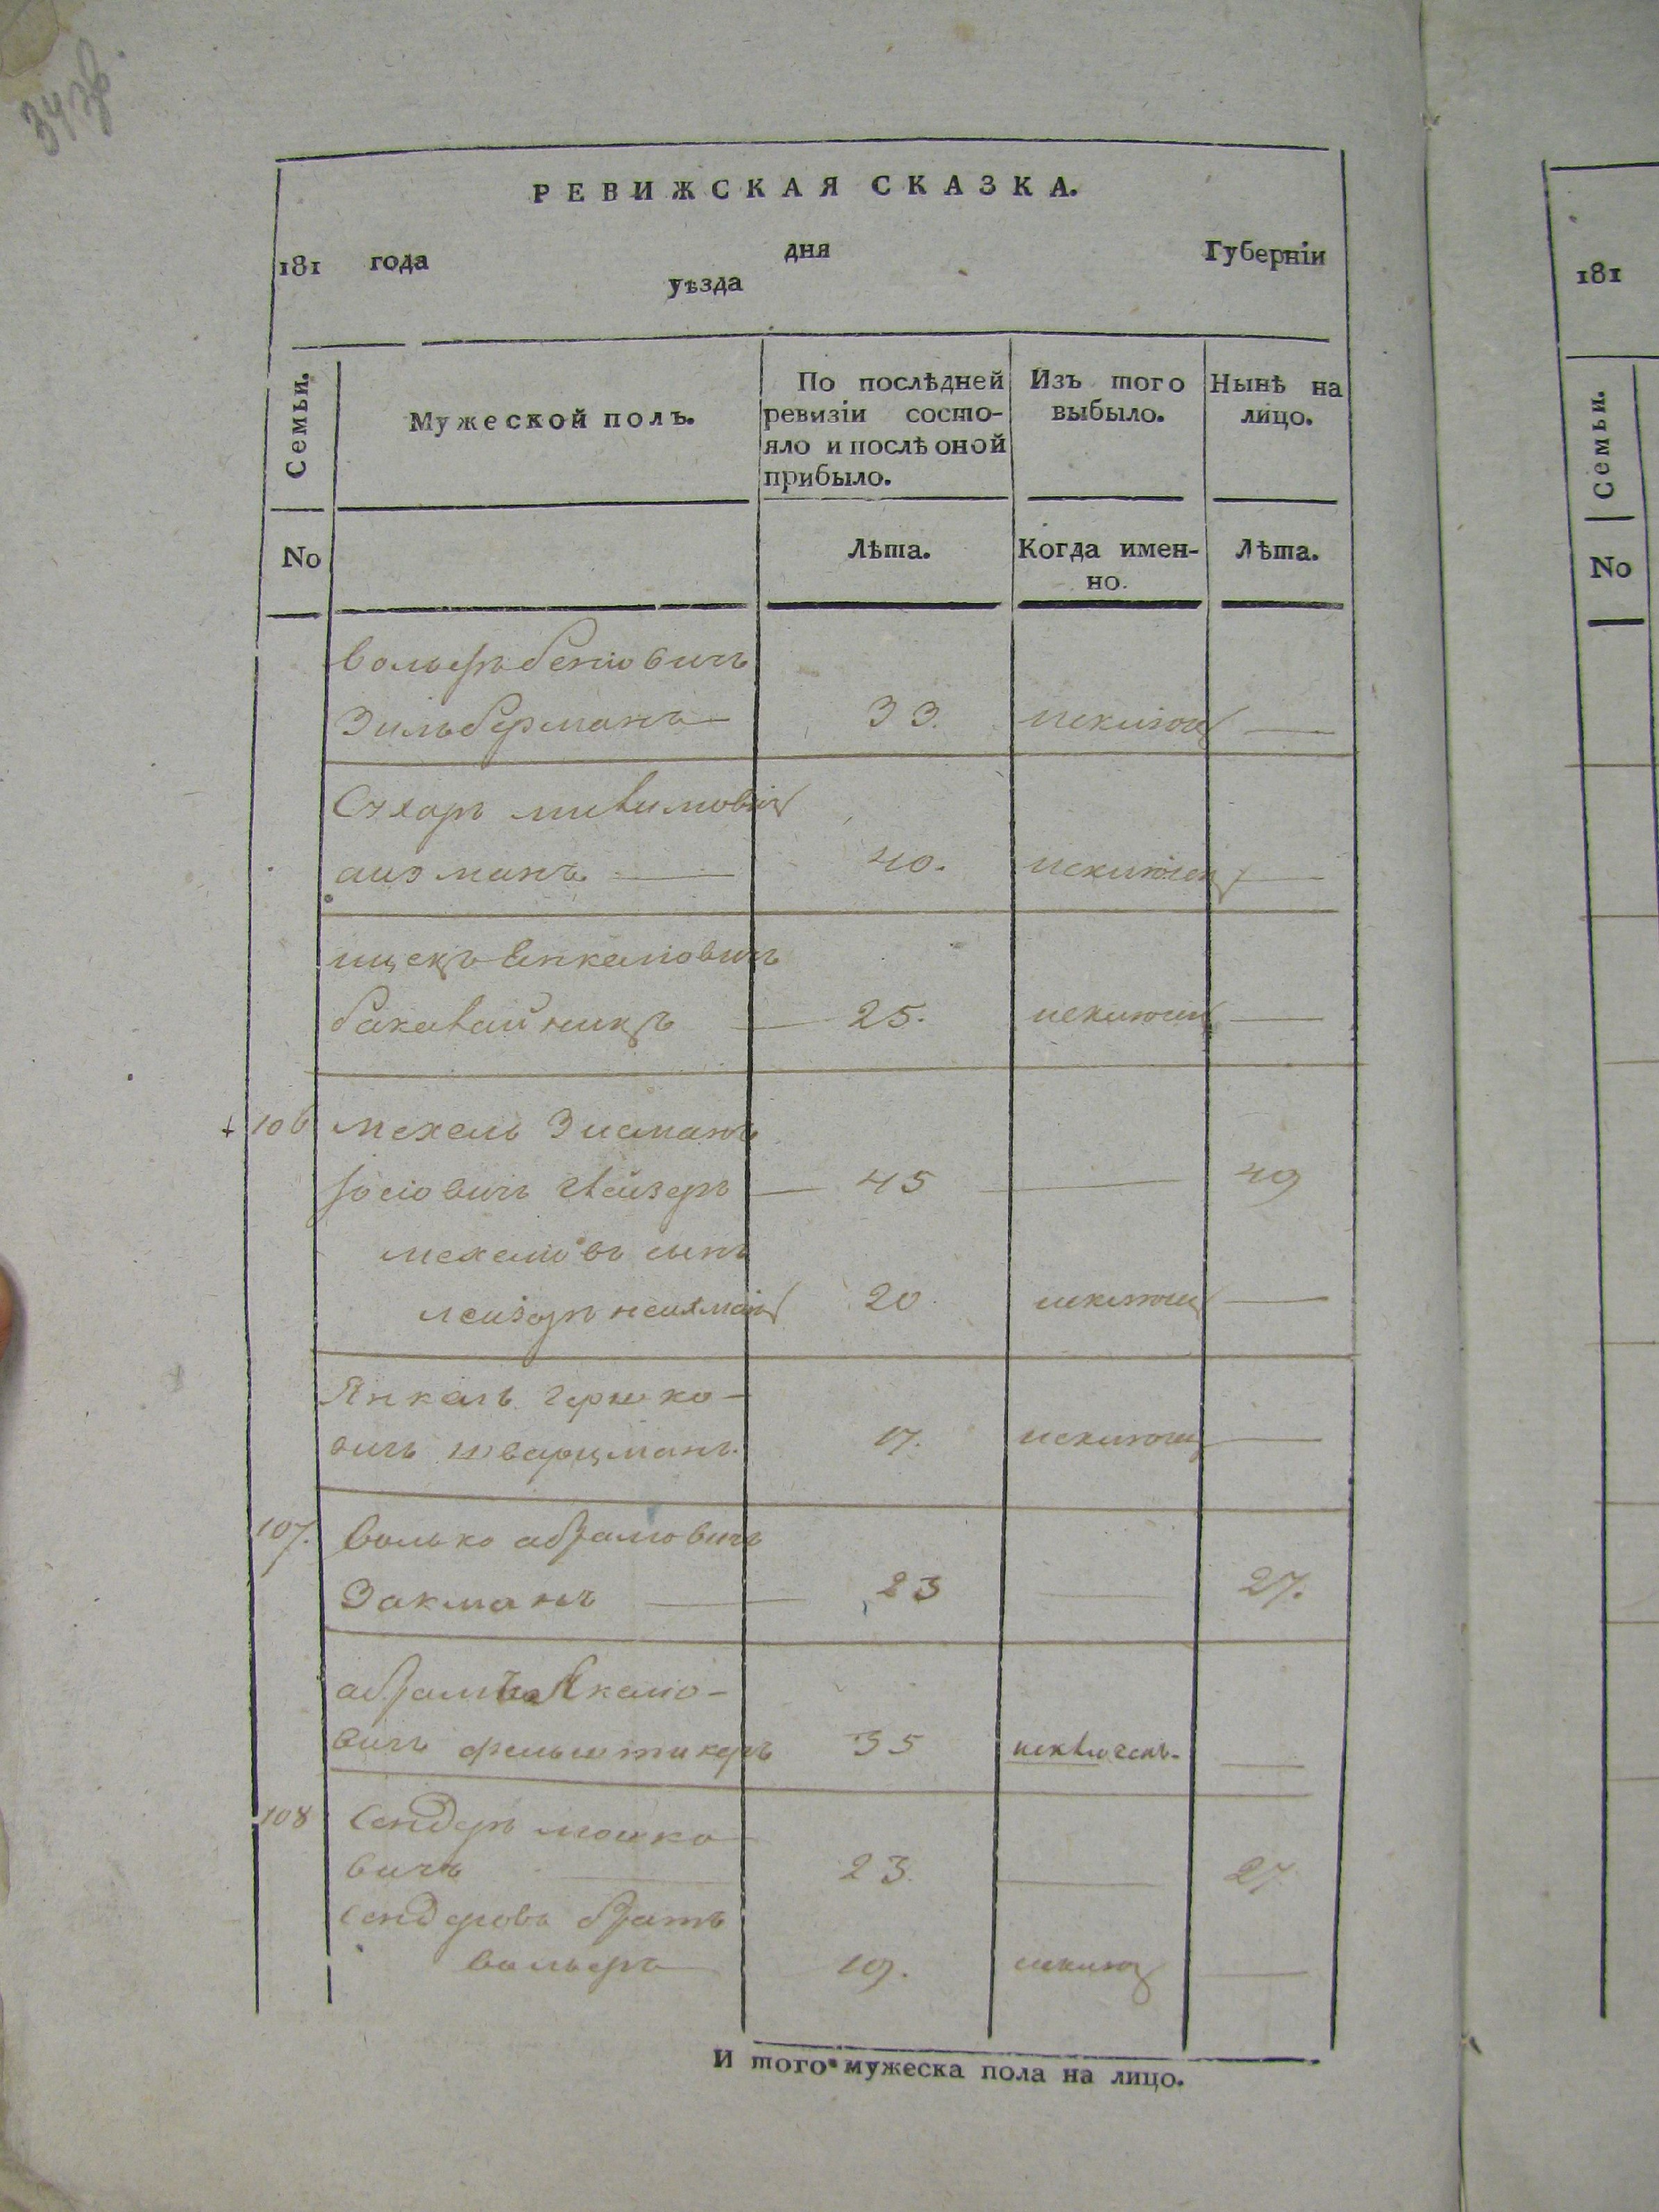 34 зв.
РЕВИЖСКАЯ СКАЗКА.
181 года дня Губерніи
уѣзда
Семьи.
Мужеской полъ.
По послѣдней ревизіи состо-
яло и послѣ оной прибыло.
Изъ того выбыло.
Нынѣ на лицо.
No
Лѣта.
Когда имен-
но.
Лѣта.
вольфъ беніовичъ
Зильберманъ 33. исключ —
Сухаръ
аизманъ — 40. исключен —
ицекъ Янкеліовичъ
25. исключен —
106 мехель Зисманъ
Іосіовичъ — 45 — 49
мехеліовъ сынъ
лейзеръ 20 исключен —
Янкель Гершко-
вичъ шварцманъ. 17. исключен —
107. волько абрамовичъ
Закманъ — 23 — 27.
абрамъ
вичъ фельштикеръ 35 исключенъ. —
108 Сендеръ мошко
вичъ — 23. — 27
Сендеровъ братъ
вольфъ 19. исключ —
И того мужеска пола на лицо.
181
Семьи.
No